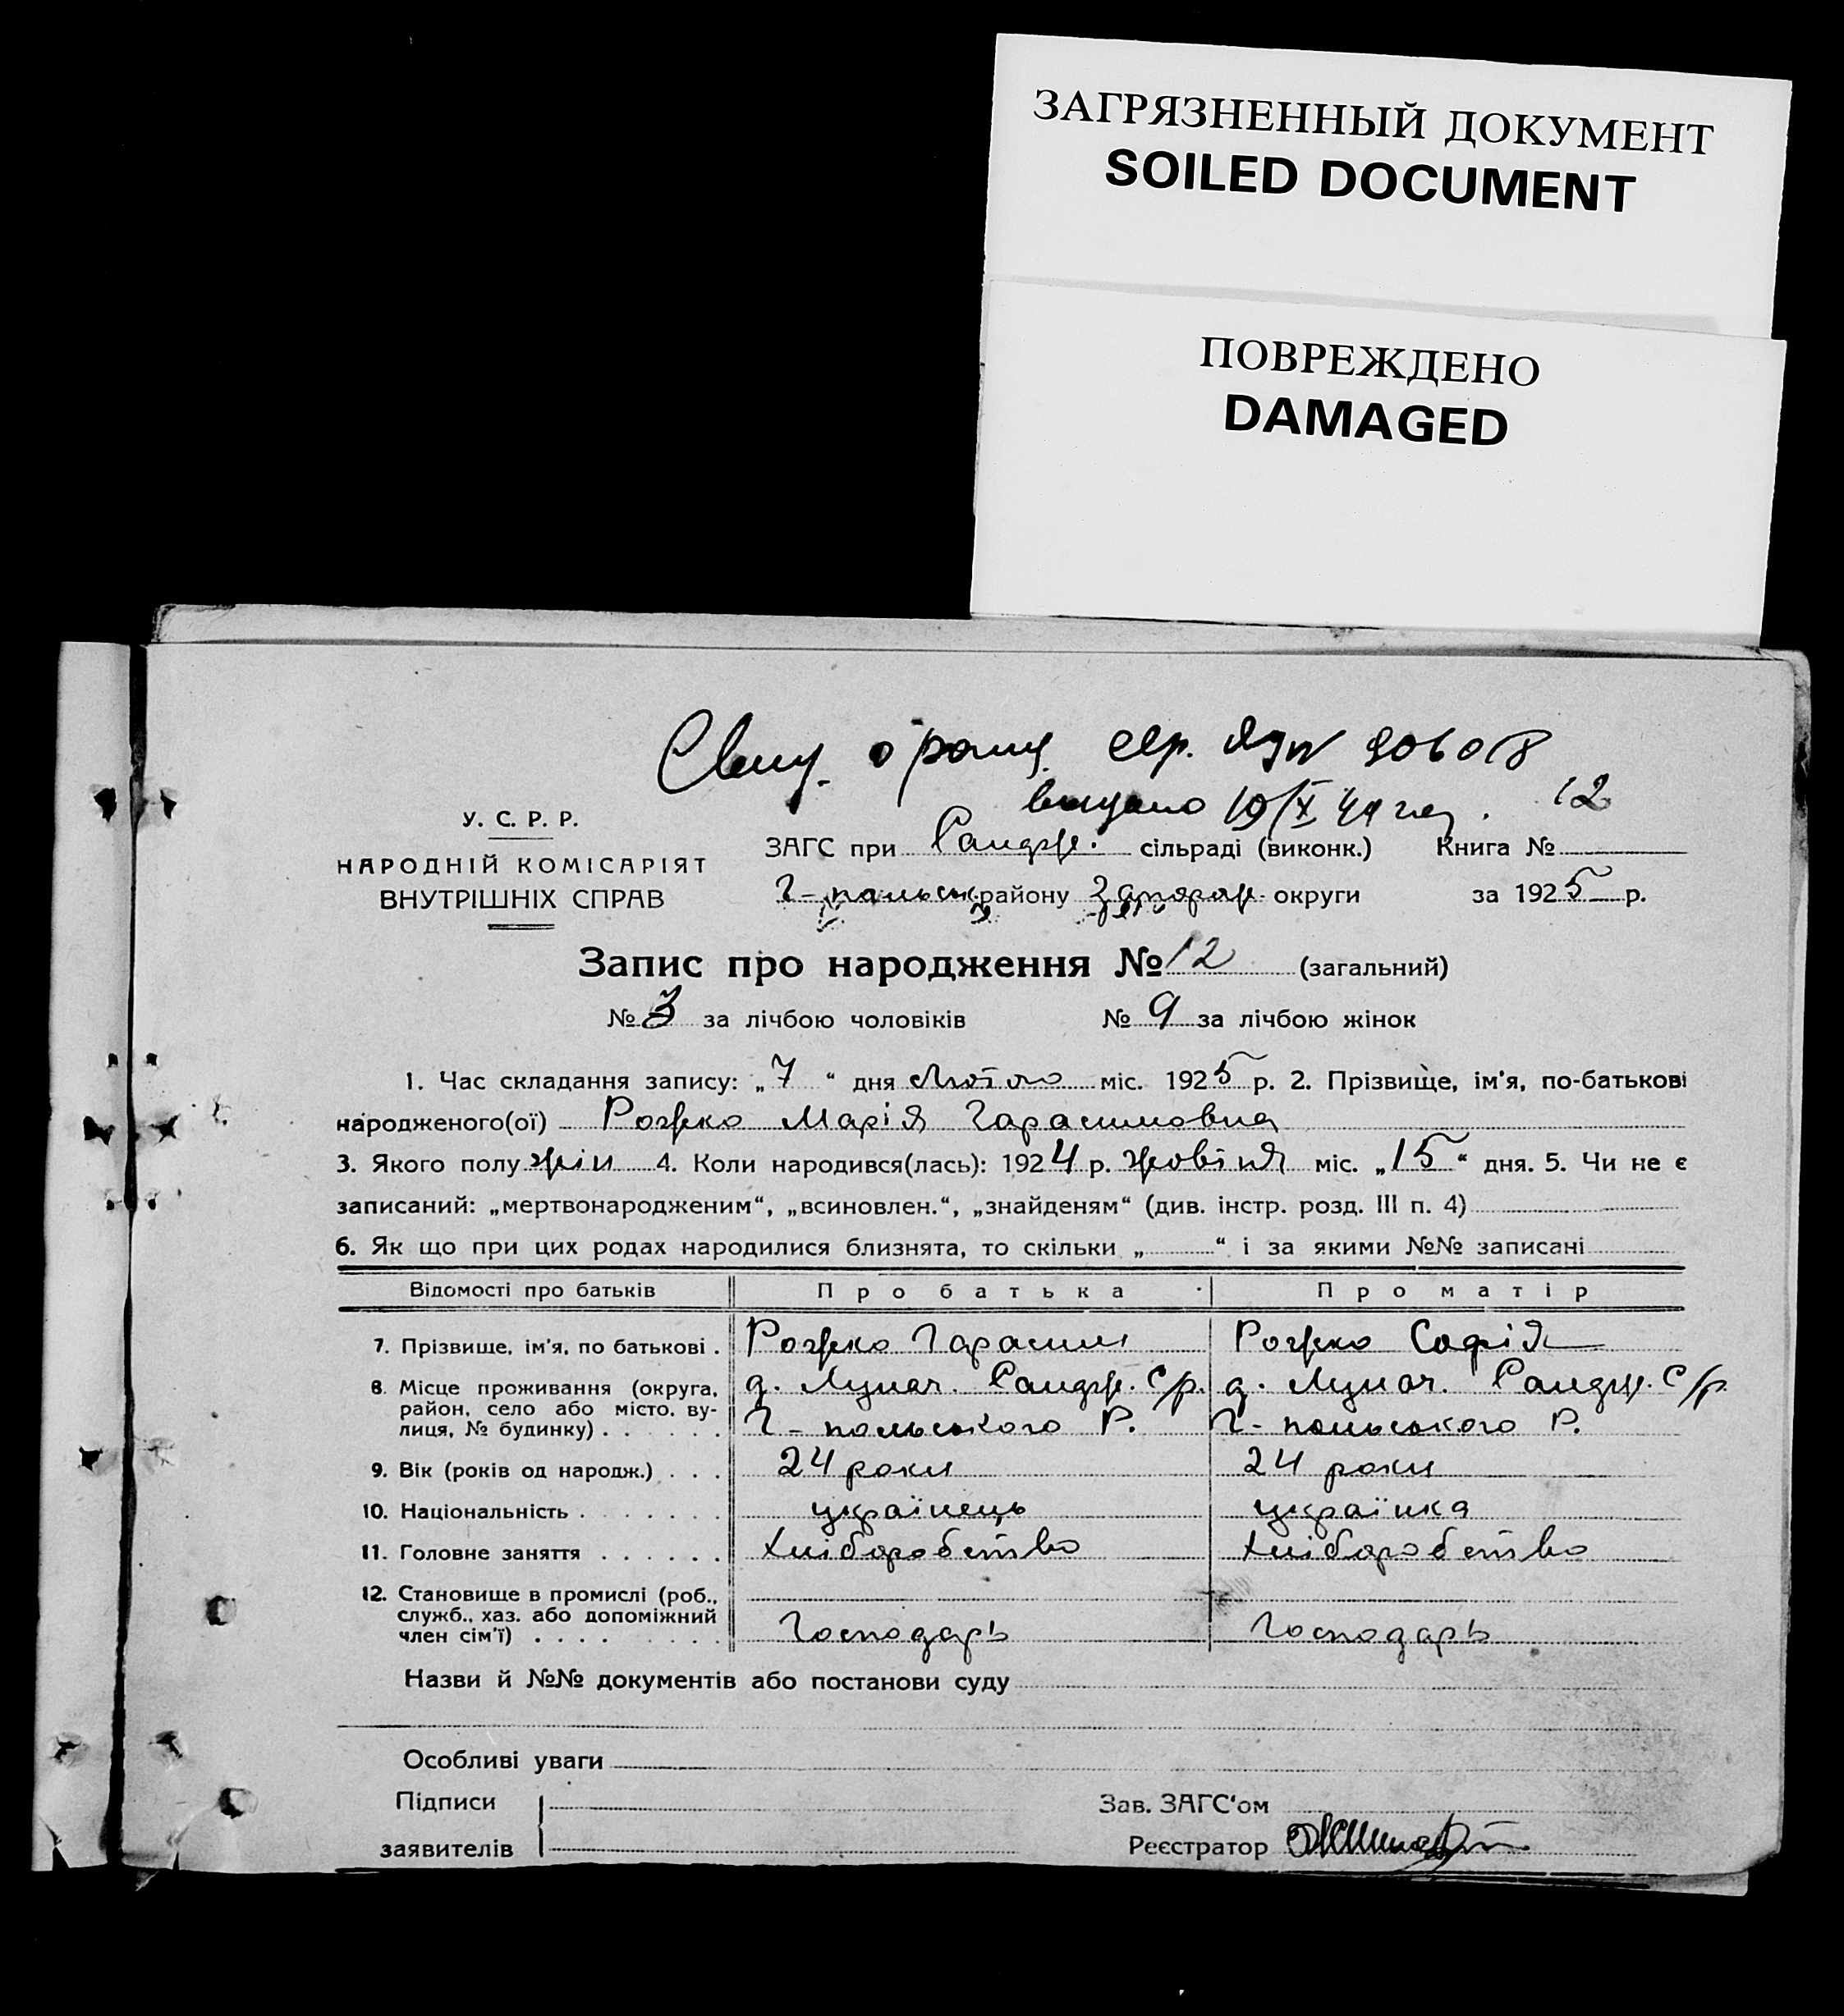 ЗАГРЯЗНЕННЫЙ ДОКУМЕНТ
SOILED DOCUMENT
ПОВРЕЖДЕНО
DAMAGED
о рожд.
видано 19/X 49
12
У. С. Р. Р.
НАРОДНІЙ КОМІСАРІЯТ
ВНУТРІШНІХ СПРАВ
ЗАГС при сільраді (виконк.) Книга №
Г-польськ. району Запорож. округи за 1925 р.
Запис про народження № 12 (загальний)
№ 3 за лічбою чоловіків № 9 за лічбою жінок
1. Час складання запису: „7“ дня Лютого міс. 1925 р. 2. Прізвище, ім'я, по-батькові
народженого(ої) Рожко Марія Гарасимовна
3. Якого полу жін 4. Коли народився(лась): 1924 р. жовтня міс. „15“ дня. 5. Чи не є
записаний: „мертвонародженим“, „всиновлен.“, „знайденям“ (див. інстр. розд. III п. 4)
6. Як що при цих родах народилися близнята, то скільки „ “ і за якими №№ записані
Відомості про батьків Про батька Про матір
7. Прізвище, ім'я, по батькові . Рожко Гарасим Рожко Софія
8. Місце проживання (округа, район, село або місто, вулиця, № будинку) . . . . . .
д. Лунач. с/р. д. Лунач. с/р.
Г-польського Р. Г-польського Р.
9. Вік (років од народж.) . . . 24 роки 24 роки
10. Національність . . . . . . . українець українка
11. Головне заняття . . . . . . Хліборобство Хліборобство
12. Становище в промислі (роб., служб., хаз. або допоміжний член сім'ї) . . . . Господарь Господарь
Назви й №№ документів або постанови суду
Особливі уваги
Підписи
заявителів
Зав. ЗАГС'ом
Реєстратор